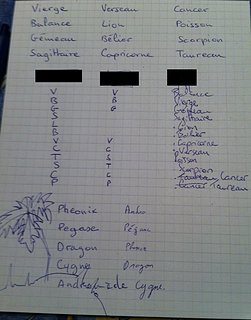 Vierge Verseau Cancer
Balance Lion Poisson
Gémeau Bélier Scorpion
Sagittaire Capricorne Taureau
V V Balance
B B Vierge
G G
S Sagittaire
L Lion
B Bélier
V V Capricorne
C C Verseau
T S Poisson
S T Scorpion
C C Cancer
P P Cancer Taureau
Pheonix
Pegase
Dragon Phoenix
Cygne Dragon
Cygne